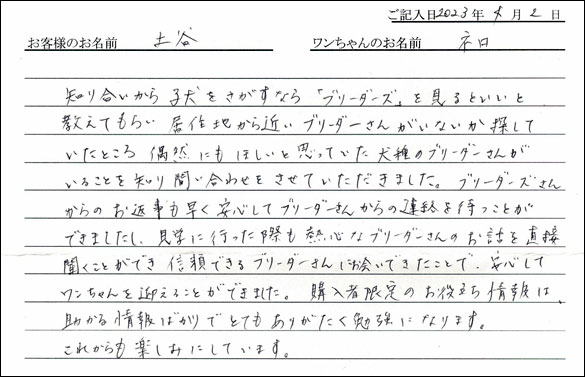 ご記入日2023年4月2日
お客様のお名前 土谷 ワンちゃんのお名前 ネロ
知り合いから子犬をさがすなら「ブリーダーズ」を見るといいと
教えてもらい居住地から近いブリーダーさんがいないか探して
いたところ偶然にもほしいと思っていた犬種のブリーダーさんが
いることを知り問い合わせをさせていただきました。ブリーダーズさん
からのお返事も早く安心してブリーダーさんからの連絡を待つことが
できましたし、見学に行った際も熱心なブリーダーさんのお話を直接
聞くことができ信頼できるブリーダーさんにお会いできたことで、安心して
ワンちゃんを迎えることができました。購入者限定のお役立ち情報は、
助かる情報ばかりでとてもありがたく勉強になります。
これからも楽しみにしています。